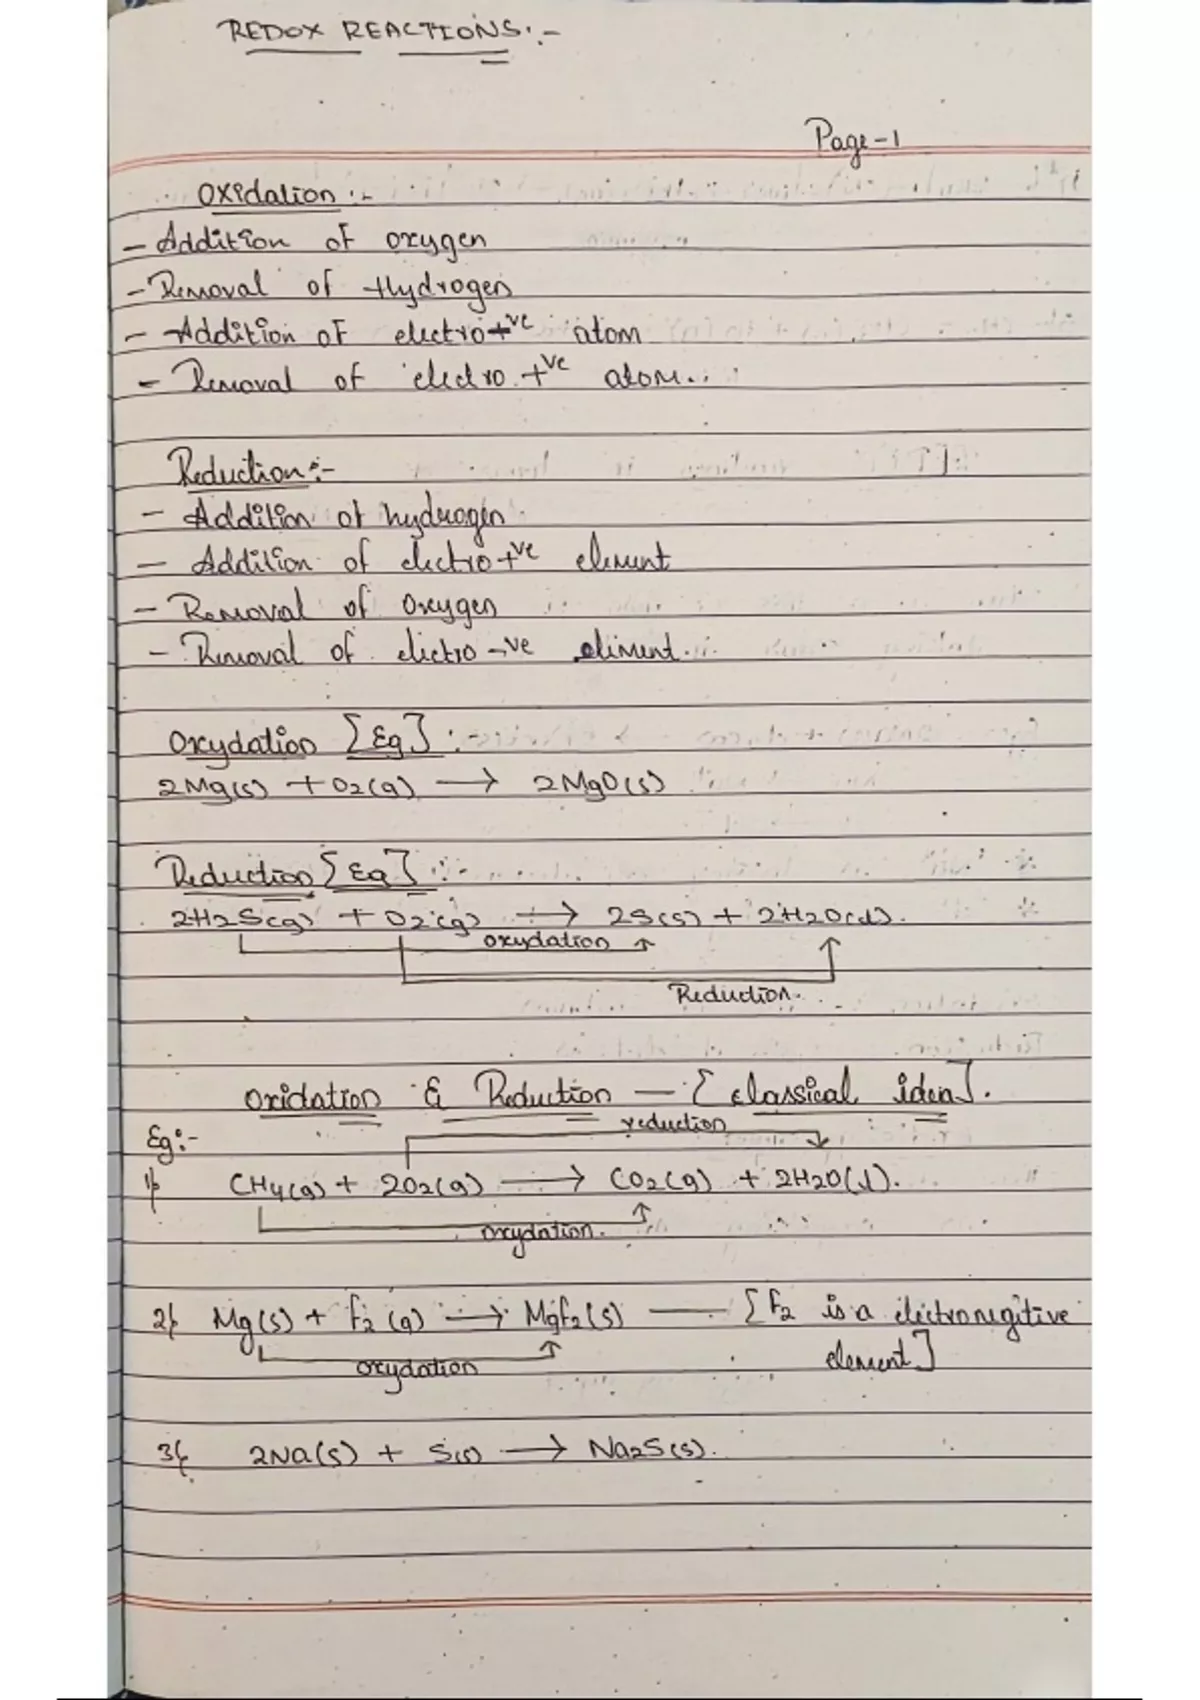 REDOX REACTIONS:-
Page-1
Oxidation :-
- Addition of oxygen
- Removal of Hydrogen
- Addition of electro+ve atom
- Removal of electro +ve atom..
Reduction:-
- Addition of hydrogen.
- Addition of electro+ve element
- Removal of Oxygen
- Removal of electro -ve eliment.
Oxydation [Eg] :-
2Mg(s) + O2(g) → 2MgO(s)
Reduction [Eg] :-
2H2S(g) + O2(g) → 2S(s) + 2H2O(l).
oxydation
Reduction.
Oxidation & Reduction — [classical idea].
reduction
Eg:-
1) CH4(g) + 2O2(g) → CO2(g) + 2H2O(l).
oxydation.
2) Mg(s) + F2(g) → MgF2(s) — [F2 is a electronegitive
oxydation element]
3) 2Na(s) + S(s) → Na2S(s).